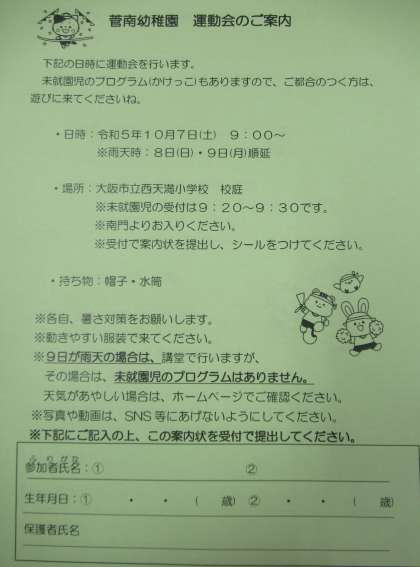 菅南幼稚園　運動会のご案内
下記の日時に運動会を行います。
未就園児のプログラム(かけっこ)もありますので、ご都合のつく方は、
遊びに来てくださいね。
・日時：令和５年１０月７日(土)　９：００～
※雨天時：８日(日)・９日(月)順延
・場所：大阪市立西天満小学校　校庭
※未就園児の受付は９：２０～９：３０です。
※南門よりお入りください。
※受付で案内状を提出し、シールをつけてください。
・持ち物：帽子・水筒
※各自、暑さ対策をお願いします。
※動きやすい服装で来てください。
※９日が雨天の場合は、講堂で行いますが、
その場合は、未就園児のプログラムはありません。
天気があやしい場合は、ホームページでご確認ください。
※写真や動画は、SNS 等にあげないようにしてください。
※下記にご記入の上、この案内状を受付で提出してください。
ふりがな
参加者氏名：①　　　　　　　　　②
生年月日：①　　・　　・　　(　　歳)　②　　・　　・　　(　　歳)
保護者氏名